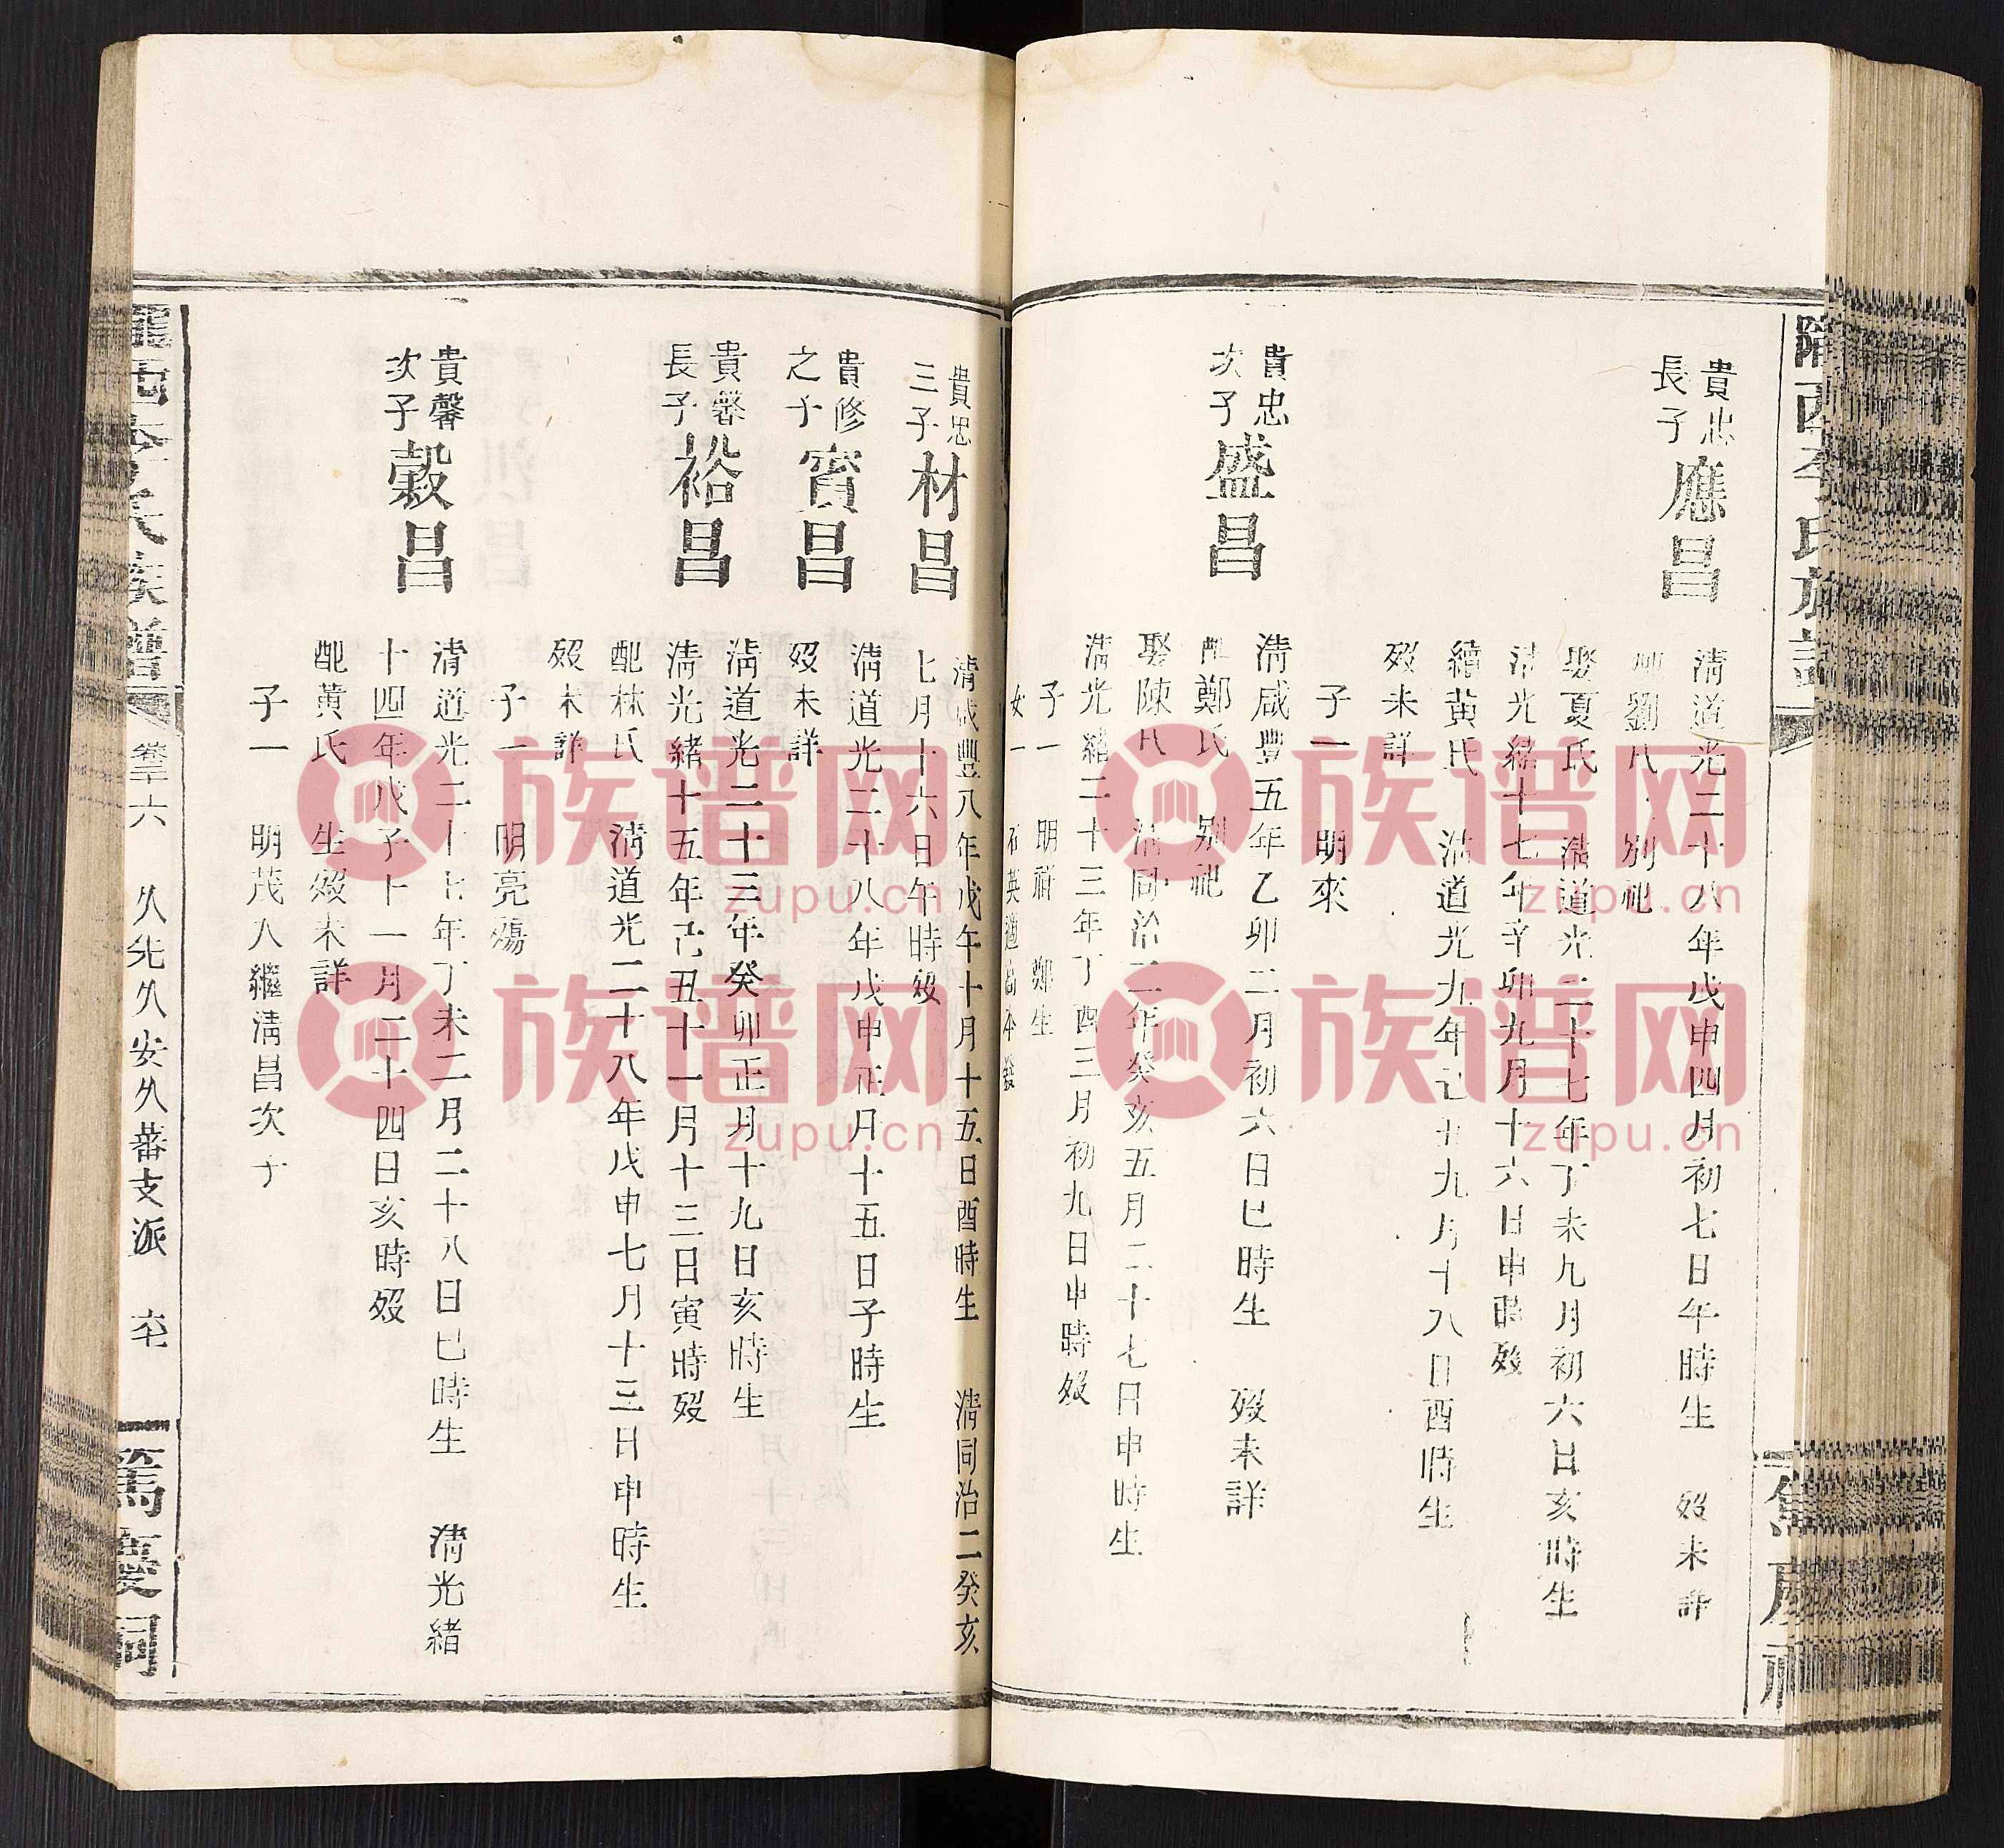 隴西李氏族譜
貴忠長子
應昌
清道光二十八年戊申四月初七日午時生 歿未詳
配劉氏 別祀
娶夏氏 清道光二十七年丁未九月初六日亥時生
清光緒十七年辛卯九月十六日申時歿
續黃氏 清道光九年己丑九月十八日酉時生
歿未詳
子一 明來
貴忠次子
盛昌
清咸豐五年乙卯二月初六日巳時生 歿未詳
配鄭氏 別祀
娶陳氏 清同治二年癸亥五月二十七日申時生
清光緒二十三年丁酉三月初九日申時歿
子一 明祥 鄭生
女一
貴忠三子
材昌
清咸豐八年戊午十月十五日酉時生 清同治二癸亥
七月十六日午時歿
貴修之子
寶昌
清道光二十八年戊申正月十五日子時生
歿未詳
貴馨長子
裕昌
清道光二十三年癸卯正月十九日亥時生
清光緒十五年己丑十一月十三日寅時歿
配林氏 清道光二十八年戊申七月十三日申時生
歿未詳
子一 明亮殤
貴馨次子
穀昌
清道光二十七年丁未二月二十八日巳時生 清光緒
十四年戊子十一月二十四日亥時歿
配黃氏 生歿未詳
子一 明茂入繼清昌次子
隴西李氏族譜 卷三十六 久先久安久蕃支派 六十七 篤慶祠
族谱网
zupu.cn
族谱网
zupu.cn
族谱网
zupu.cn
族谱网
zupu.cn